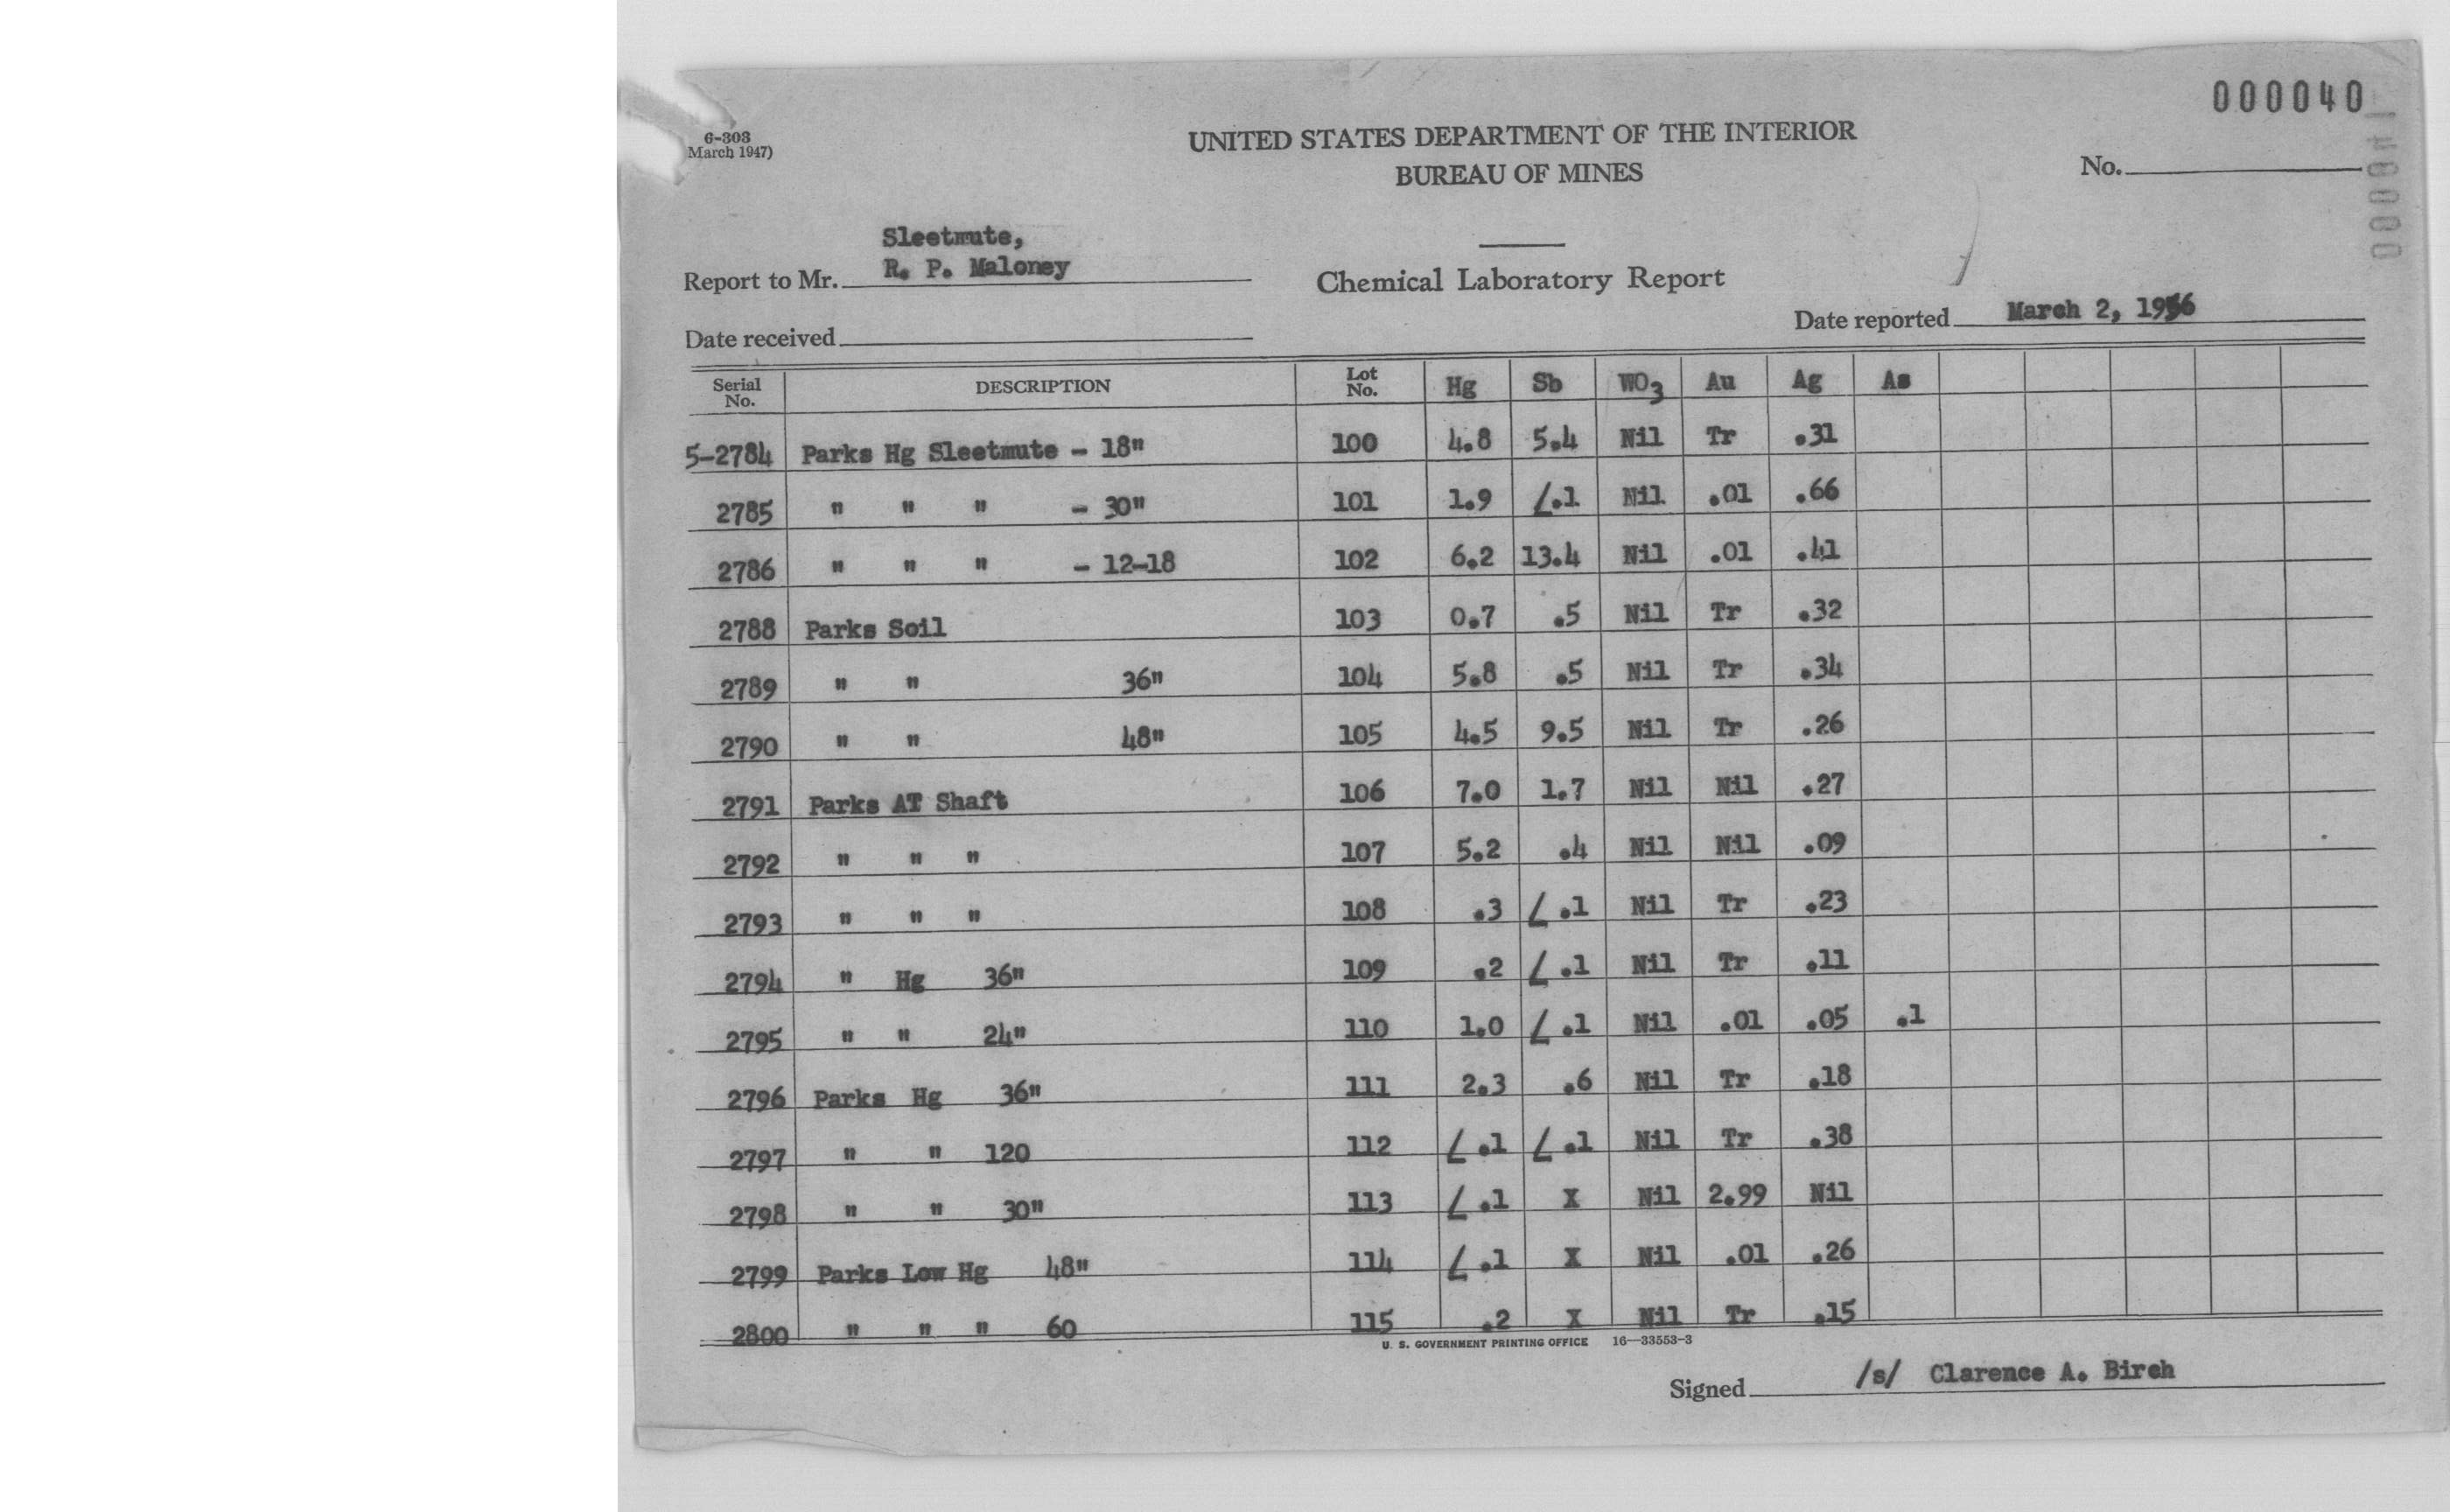 000040
6-303
March 1947)
UNITED STATES DEPARTMENT OF THE INTERIOR
BUREAU OF MINES
No.
Sleetmute,
Report to Mr. R. P. Maloney
Chemical Laboratory Report
Date received
Date reported March 2, 1956
Serial No. DESCRIPTION Lot No. Hg Sb WO3 Au Ag As
5-2784 Parks Hg Sleetmute - 18" 100 4.8 5.4 Nil Tr .31
2785 " " " - 30" 101 1.9 ∠.1 Nil .01 .66
2786 " " " - 12-18 102 6.2 13.4 Nil .01 .41
2788 Parks Soil 103 0.7 .5 Nil Tr .32
2789 " " 36" 104 5.8 .5 Nil Tr .34
2790 " " 48" 105 4.5 9.5 Nil Tr .26
2791 Parks AT Shaft 106 7.0 1.7 Nil Nil .27
2792 " " " 107 5.2 .4 Nil Nil .09
2793 " " " 108 .3 ∠ .1 Nil Tr .23
2794 " Hg 36" 109 .2 ∠ .1 Nil Tr .11
2795 " " 24" 110 1.0 ∠ .1 Nil .01 .05 .1
2796 Parks Hg 36" 111 2.3 .6 Nil Tr .18
2797 " " 120 112 ∠ .1 ∠ .1 Nil Tr .38
2798 " " 30" 113 ∠ .1 X Nil 2.99 Nil
2799 Parks Low Hg 48" 114 ∠ .1 X Nil .01 .26
2800 " " " 60 115 .2 X Nil Tr .15
U. S. GOVERNMENT PRINTING OFFICE 16—33553-3
Signed /s/ Clarence A. Birch